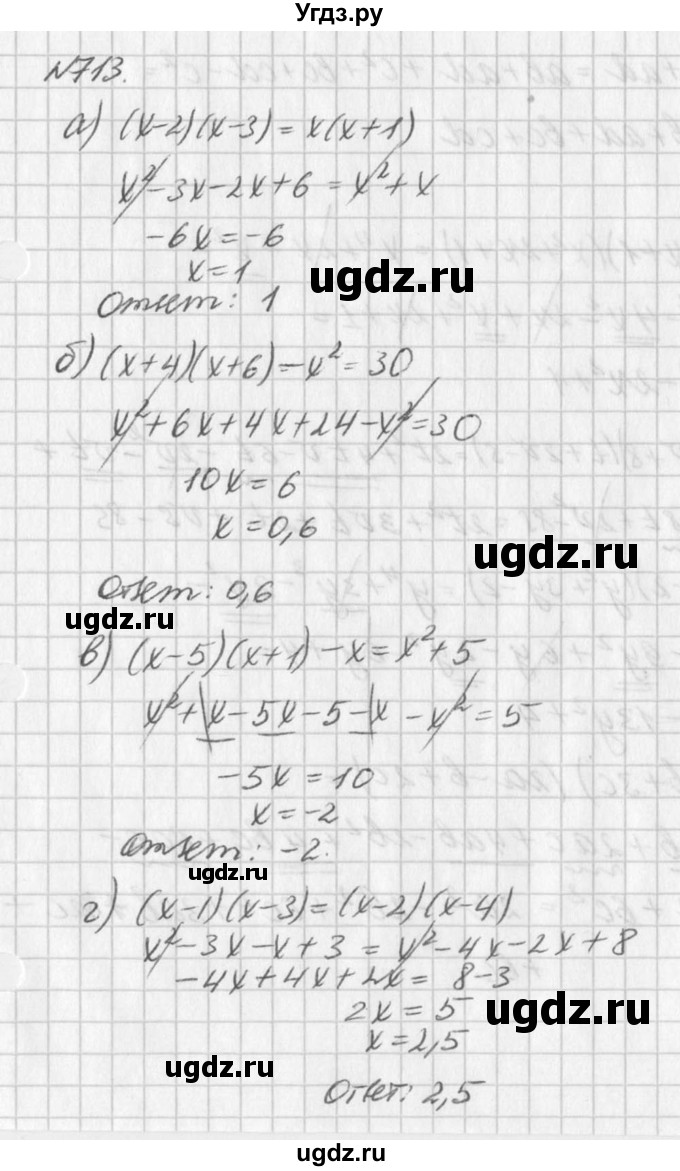 Угдз.ру
№713.
а) (x-2)(x-3)=x(x+1)
x²-3x-2x+6=x²+x
-6x=-6
x=1
ugdz.ru
Ответ: 1
б) (x+4)(x+6)-x²=30
x²+6x+4x+24-x²=30
10x=6
x=0,6
ugdz.ru
Ответ: 0,6
ugdz.ru
в) (x-5)(x+1)-x=x²+5
x²+x-5x-5-x-x²=5
-5x=10
x=-2
Ответ: -2.
ugdz.ru
г) (x-1)(x-3)=(x-2)(x-4)
x²-3x-x+3=x²-4x-2x+8
-4x+4x+2x=8-3
2x=5
ugdz.ru
x=2,5
ugdz.ru
Ответ: 2,5
ugdz.ru